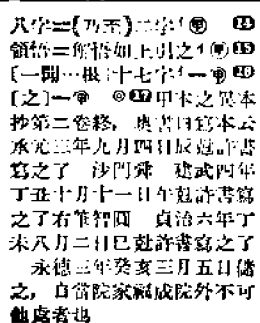 八字=(乃至)二字イ甲 ⑭
領悟=解悟如上引之イ甲⑮
〔一開…根〕十七字イ-甲⑯
〔之〕-甲 ◎⑰甲本之異本
抄第二卷終，奧書曰寫本云
承元三年九月四日辰尅許書
寫之了 沙門舜 建武四年
丁丑十月十一日午尅許書寫
之了右筆智圓 貞治六年丁
未八月二日巳尅許書寫之了
永德三年癸亥三月五日儲
之，自當院家經成院外不可
他處者也